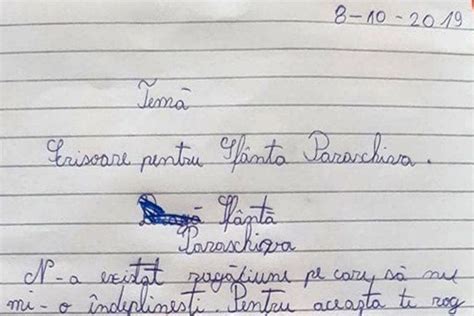 8-10-2019
Temă
Scrisoare pentru Sfânta Parascheva.
Sfântă
Parascheva
N-a existat rugățiune pe care să nu
mi-o îndeplinești. Pentru aceasta te rog